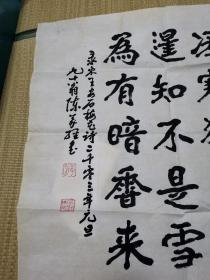 凌寒
遥知不是雪
為有暗香来
录宋王安石梅花诗二千零三年元旦
翁陈